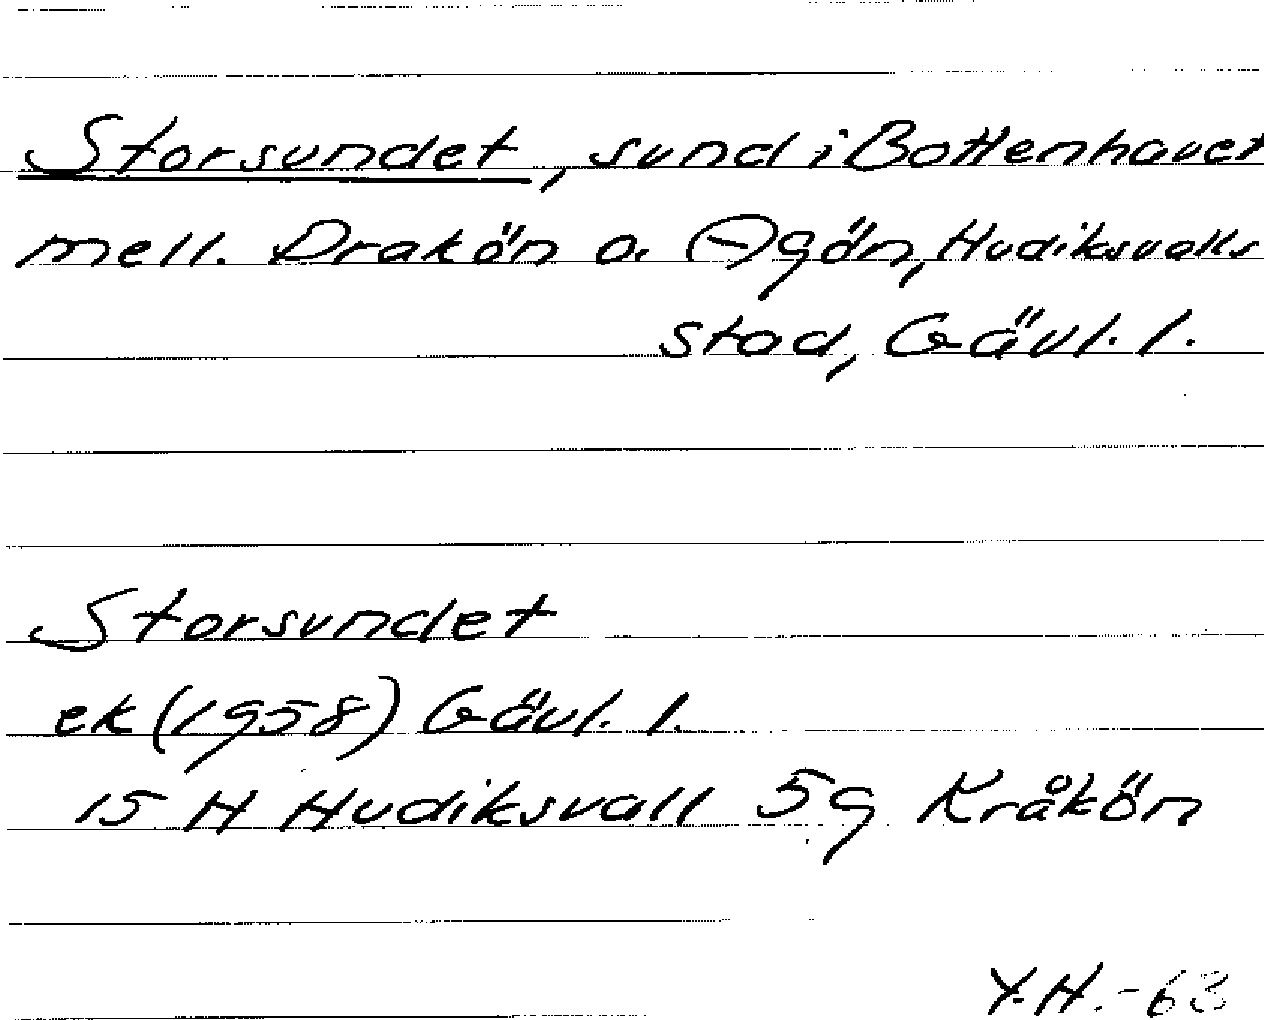 Storsundet, sund i Bottenhavet
mell. Drakön o. Agön, Hudiksvalls
stad, Gävl. l.
Storsundet
ek (1958) Gävl. l.
15 H Hudiksvall 5g Kråkön
Y.H. -63